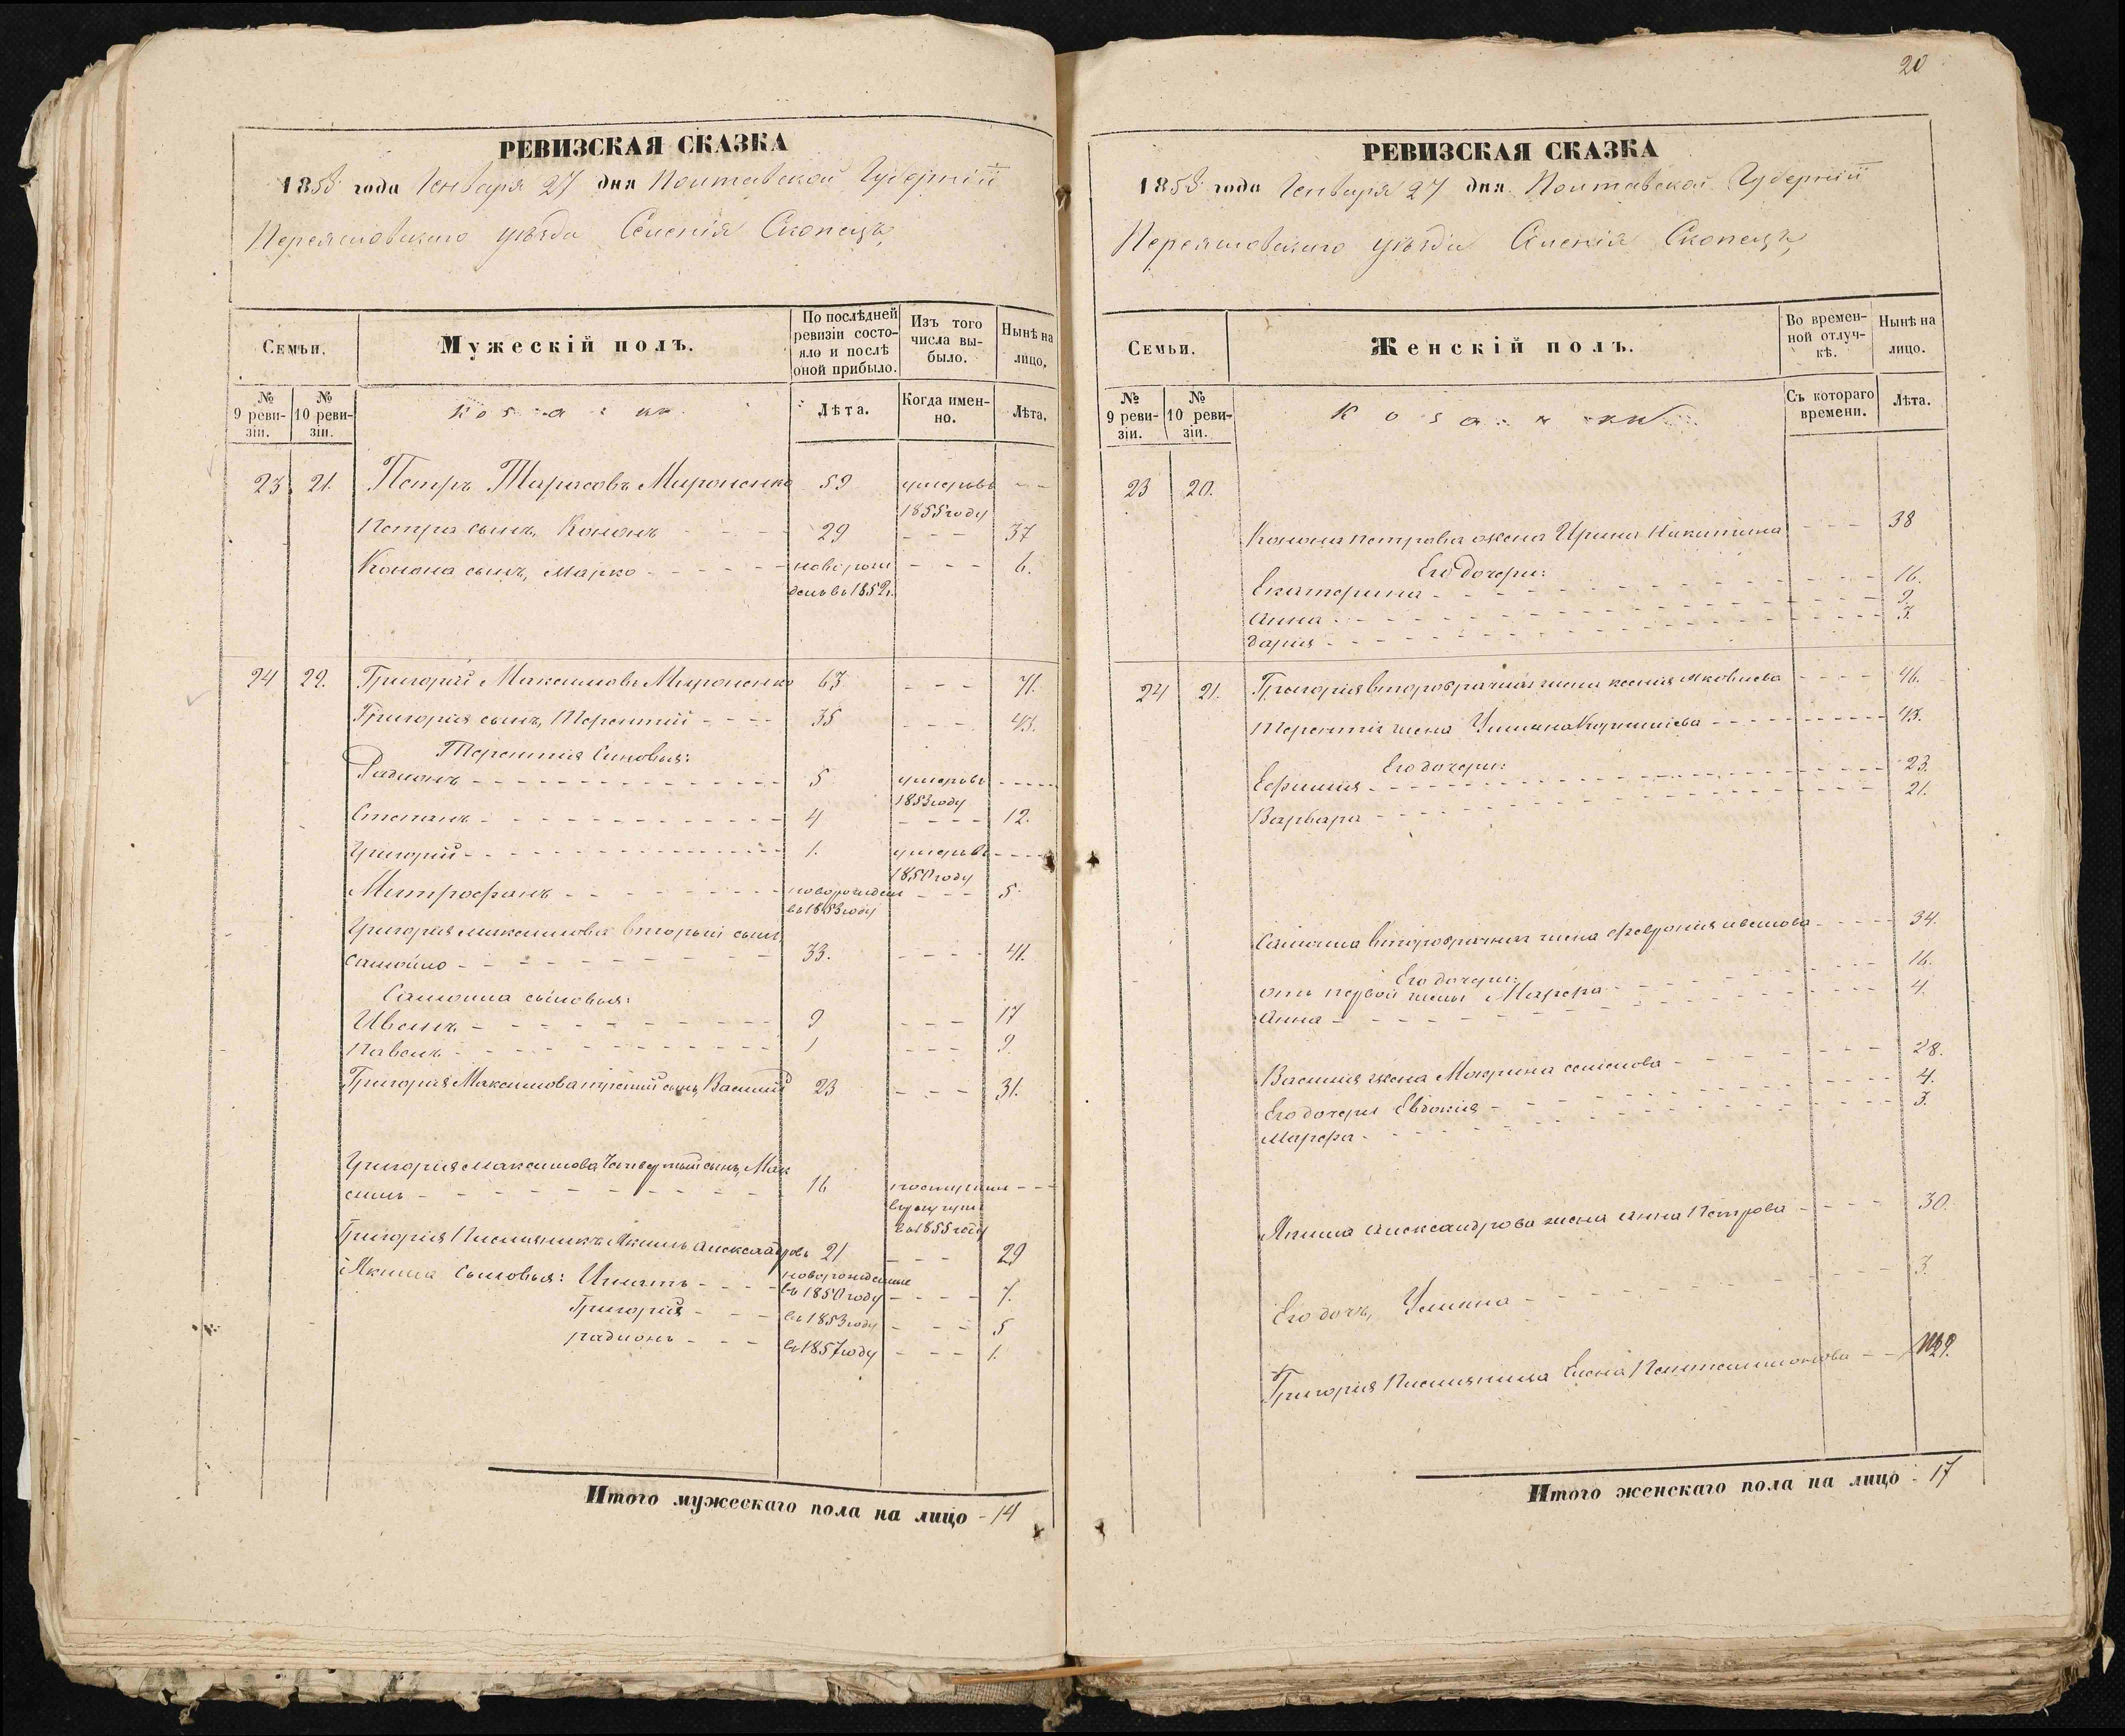 20
РЕВИЗСКАЯ СКАЗКА
1858 года Генваря 27 дня Полтавской Губерніи
Переяславскаго уѣзда Селенія Скопецъ
Семьи.
Мужескій полъ.
По послѣдней ревизіи состояло и послѣ оной прибыло.
Изъ того числа выбыло.
Нынѣ на лицо.
№ 9 ревизіи.
№ 10 ревизіи.
Козаки
Лѣта.
Когда именно.
Лѣта.
23 21. Петръ Тарасовъ Мироненко 59 умеръ въ 1855 году - -
Петра сынъ, Кононъ - - - 29 - - - 37
Конона сынъ, Марко - - - - - новорожденъ въ 1852 г. - - - 6.
24 22. Григорій Максимовъ Мироненко 63 - - - 71.
Григорія сынъ, Терентій - - - - 35 - - - 43.
Терентія сыновья:
Радионъ - - - - - 5 умеръ въ 1853 году - - - -
Степанъ - - - - - 4 - - - - 12.
Григорій - - - - - 1. умеръ въ 1850 году - - - -
Митрофанъ - - - - - новорожденъ въ 1853 году - - - 5.
Григорія Максимова вторый сынъ,
Самойло - - - - - 33. - - - - 41.
Самойла сыновья:
Иванъ - - - - - 9 - - - 17
Павелъ - - - - - 1 - - - 9.
Григорія Максимова третій сынъ, Василій 23 - - - 31.
Григорія Максимова Четвертый сынъ, Мак
симъ - - - - - 16 въ 1855 году - - -
Григорія Акимъ Александровъ 21 - - - 29
Акима сыновья: Игнатъ - - - - новорожденные въ 1850 году - - - - 7.
Григорій - - - въ 1853 году - - - 5
Радионъ - - - въ 1857 году - - - 1.
Итого мужескаго пола на лицо - 14
РЕВИЗСКАЯ СКАЗКА
1858 года Генваря 27 дня Полтавской Губерніи
Переяславскаго уѣзда Селенія Скопецъ
Семьи.
Женскій полъ.
Во временной отлучкѣ.
Нынѣ на лицо.
№ 9 ревизіи.
№ 10 ревизіи.
Козачки
Съ котораго времени.
Лѣта.
23 20.
Конона Петрова жена Ирина Никитина - - - 38
Его дочери:
Екатерина - - - - - 16.
Анна - - - - - 9.
Дарія - - - - - 3.
24 21. Григорія второбрачная жена Ксенія Яковлева - - - - 46.
Терентія жена Ульяна - - - - - 43.
Его дочери:
Ефимия - - - - - 23.
Варвара - - - - - 21.
Самойла второбрачная жена Феврония Иванова - - - - 34.
Его дочери:
отъ первой жены Марфа - - - - - 16.
Анна - - - - - 4.
Василія жена Мокрина Семенова - - - - - 28.
Его дочери Евдокия - - - - - 4.
Марфа - - - - - 3.
Акима Александрова жена Анна Петрова - - - - 30.
Его дочь, Ульяна - - - - - 3.
Григорія Елена Пантелимонова - - 29.
Итого женскаго пола на лицо - 17